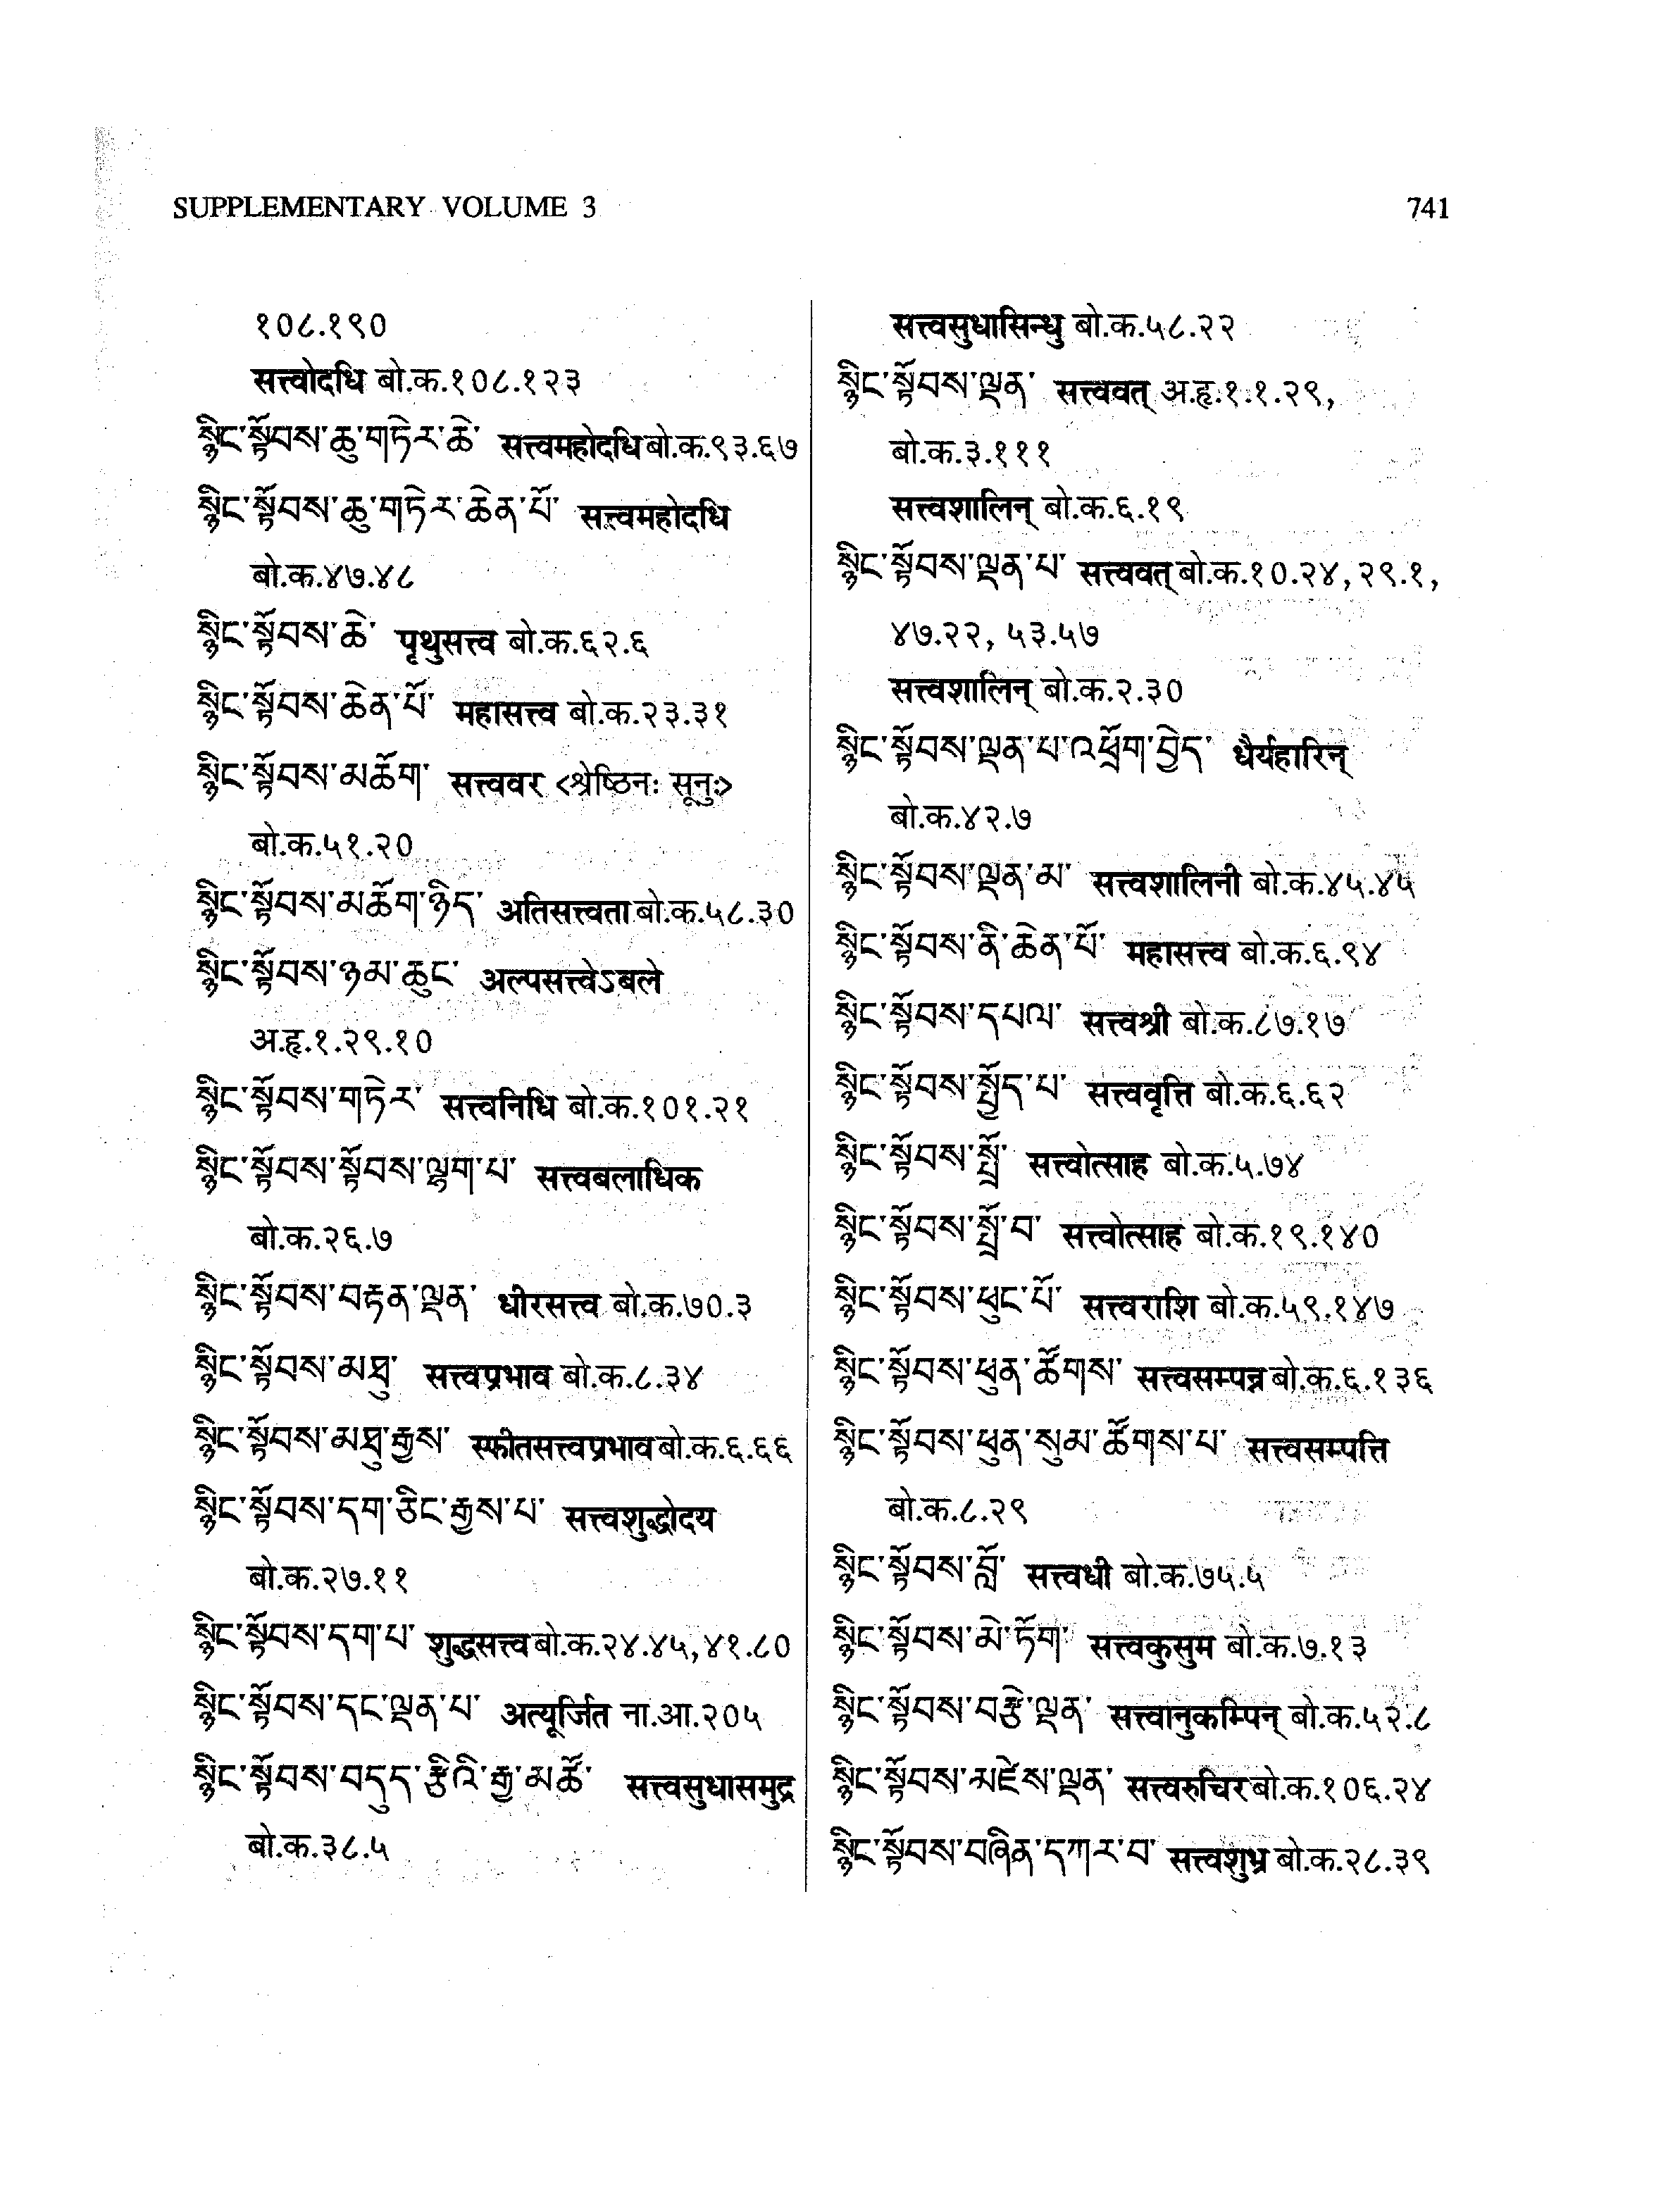 SUPPLEMENTARY VOLUME 3 741
१०८.१९०
सत्त्वोदधि बो.क.१०८.१२३
སྙིང་སྟོབས་ཆུ་གཏེར་ཆེ་ सत्त्वमहोदधि बो.क.९३.६७
སྙིང་སྟོབས་ཆུ་གཏེར་ཆེན་པོ་ सत्त्वमहोदधि
बो.क.४७.४८
སྙིང་སྟོབས་ཆེ་ पृथुसत्त्व बो.क.६२.६
སྙིང་སྟོབས་ཆེན་པོ་ महासत्त्व बो.क.२३.३१
སྙིང་སྟོབས་མཆོག་ सत्त्ववर <श्रेष्ठिनः सूनुः>
बो.क.५१.२०
སྙིང་སྟོབས་མཆོག་ཉིད་ अतिसत्त्वता बो.क.५८.३०
སྙིང་སྟོབས་ཉམ་ཆུང་ अल्पसत्त्वेऽबले
अ.हृ.१.२९.१०
སྙིང་སྟོབས་གཏེར་ सत्त्वनिधि बो.क.१०१.२१
སྙིང་སྟོབས་སྟོབས་ལྷག་པ་ सत्त्वबलाधिक
बो.क.२६.७
སྙིང་སྟོབས་བརྟན་ལྡན་ धीरसत्त्व बो.क.७०.३
སྙིང་སྟོབས་མཐུ་ सत्त्वप्रभाव बो.क.८.३४
སྙིང་སྟོབས་མཐུ་རྒྱས་ स्फीतसत्त्वप्रभाव बो.क.६.६६
སྙིང་སྟོབས་དག་ཅིང་རྒྱས་པ་ सत्त्वशुद्धोदय
बो.क.२७.११
སྙིང་སྟོབས་དག་པ་ शुद्धसत्त्व बो.क.२४.४५,४१.८०
སྙིང་སྟོབས་དང་ལྡན་པ་ अत्यूर्जित ना.आ.२०५
སྙིང་སྟོབས་བདུད་རྩིའི་རྒྱ་མཚོ་ सत्त्वसुधासमुद्र
बो.क.३८.५
सत्त्वसुधासिन्धु बो.क.५८.२२
སྙིང་སྟོབས་ལྡན་ सत्त्ववत् अ.हृ.१.१.२९,
बो.क.३.१११
सत्त्वशालिन् बो.क.६.१९
སྙིང་སྟོབས་ལྡན་པ་ सत्त्ववत् बो.क.१०.२४,२९.१,
४७.२२, ५३.५७
सत्त्वशालिन् बो.क.२.३०
སྙིང་སྟོབས་ལྡན་པ་འཕྲོག་བྱེད་ धैर्यहारिन्
बो.क.४२.७
སྙིང་སྟོབས་ལྡན་མ་ सत्त्वशालिनी बो.क.४५.४५
སྙིང་སྟོབས་ནི་ཆེན་པོ་ महासत्त्व बो.क.६.९४
སྙིང་སྟོབས་དཔལ་ सत्त्वश्री बो.क.८७.१७
སྙིང་སྟོབས་སྤྱོད་པ་ सत्त्ववृत्ति बो.क.६.६२
སྙིང་སྟོབས་སྤྲོ་ सत्त्वोत्साह बो.क.५.७४
སྙིང་སྟོབས་སྤྲོ་བ་ सत्त्वोत्साह बो.क.१९.१४०
སྙིང་སྟོབས་ཕུང་པོ་ सत्त्वराशि बो.क.५९.१४७
སྙིང་སྟོབས་ཕུན་ཚོགས་ सत्त्वसम्पन्न बो.क.६.१३६
སྙིང་སྟོབས་ཕུན་སུམ་ཚོགས་པ་ सत्त्वसम्पत्ति
बो.क.८.२९
སྙིང་སྟོབས་བློ་ सत्त्वधी बो.क.७५.५
སྙིང་སྟོབས་མེ་ཏོག་ सत्त्वकुसुम बो.क.७.१३
སྙིང་སྟོབས་བརྩེ་ལྡན་ सत्त्वानुकम्पिन् बो.क.५२.८
སྙིང་སྟོབས་མཛེས་ལྡན་ सत्त्वरुचिर बो.क.१०६.२४
སྙིང་སྟོབས་བཞིན་དཀར་བ་ सत्त्वशुभ्र बो.क.२८.३९